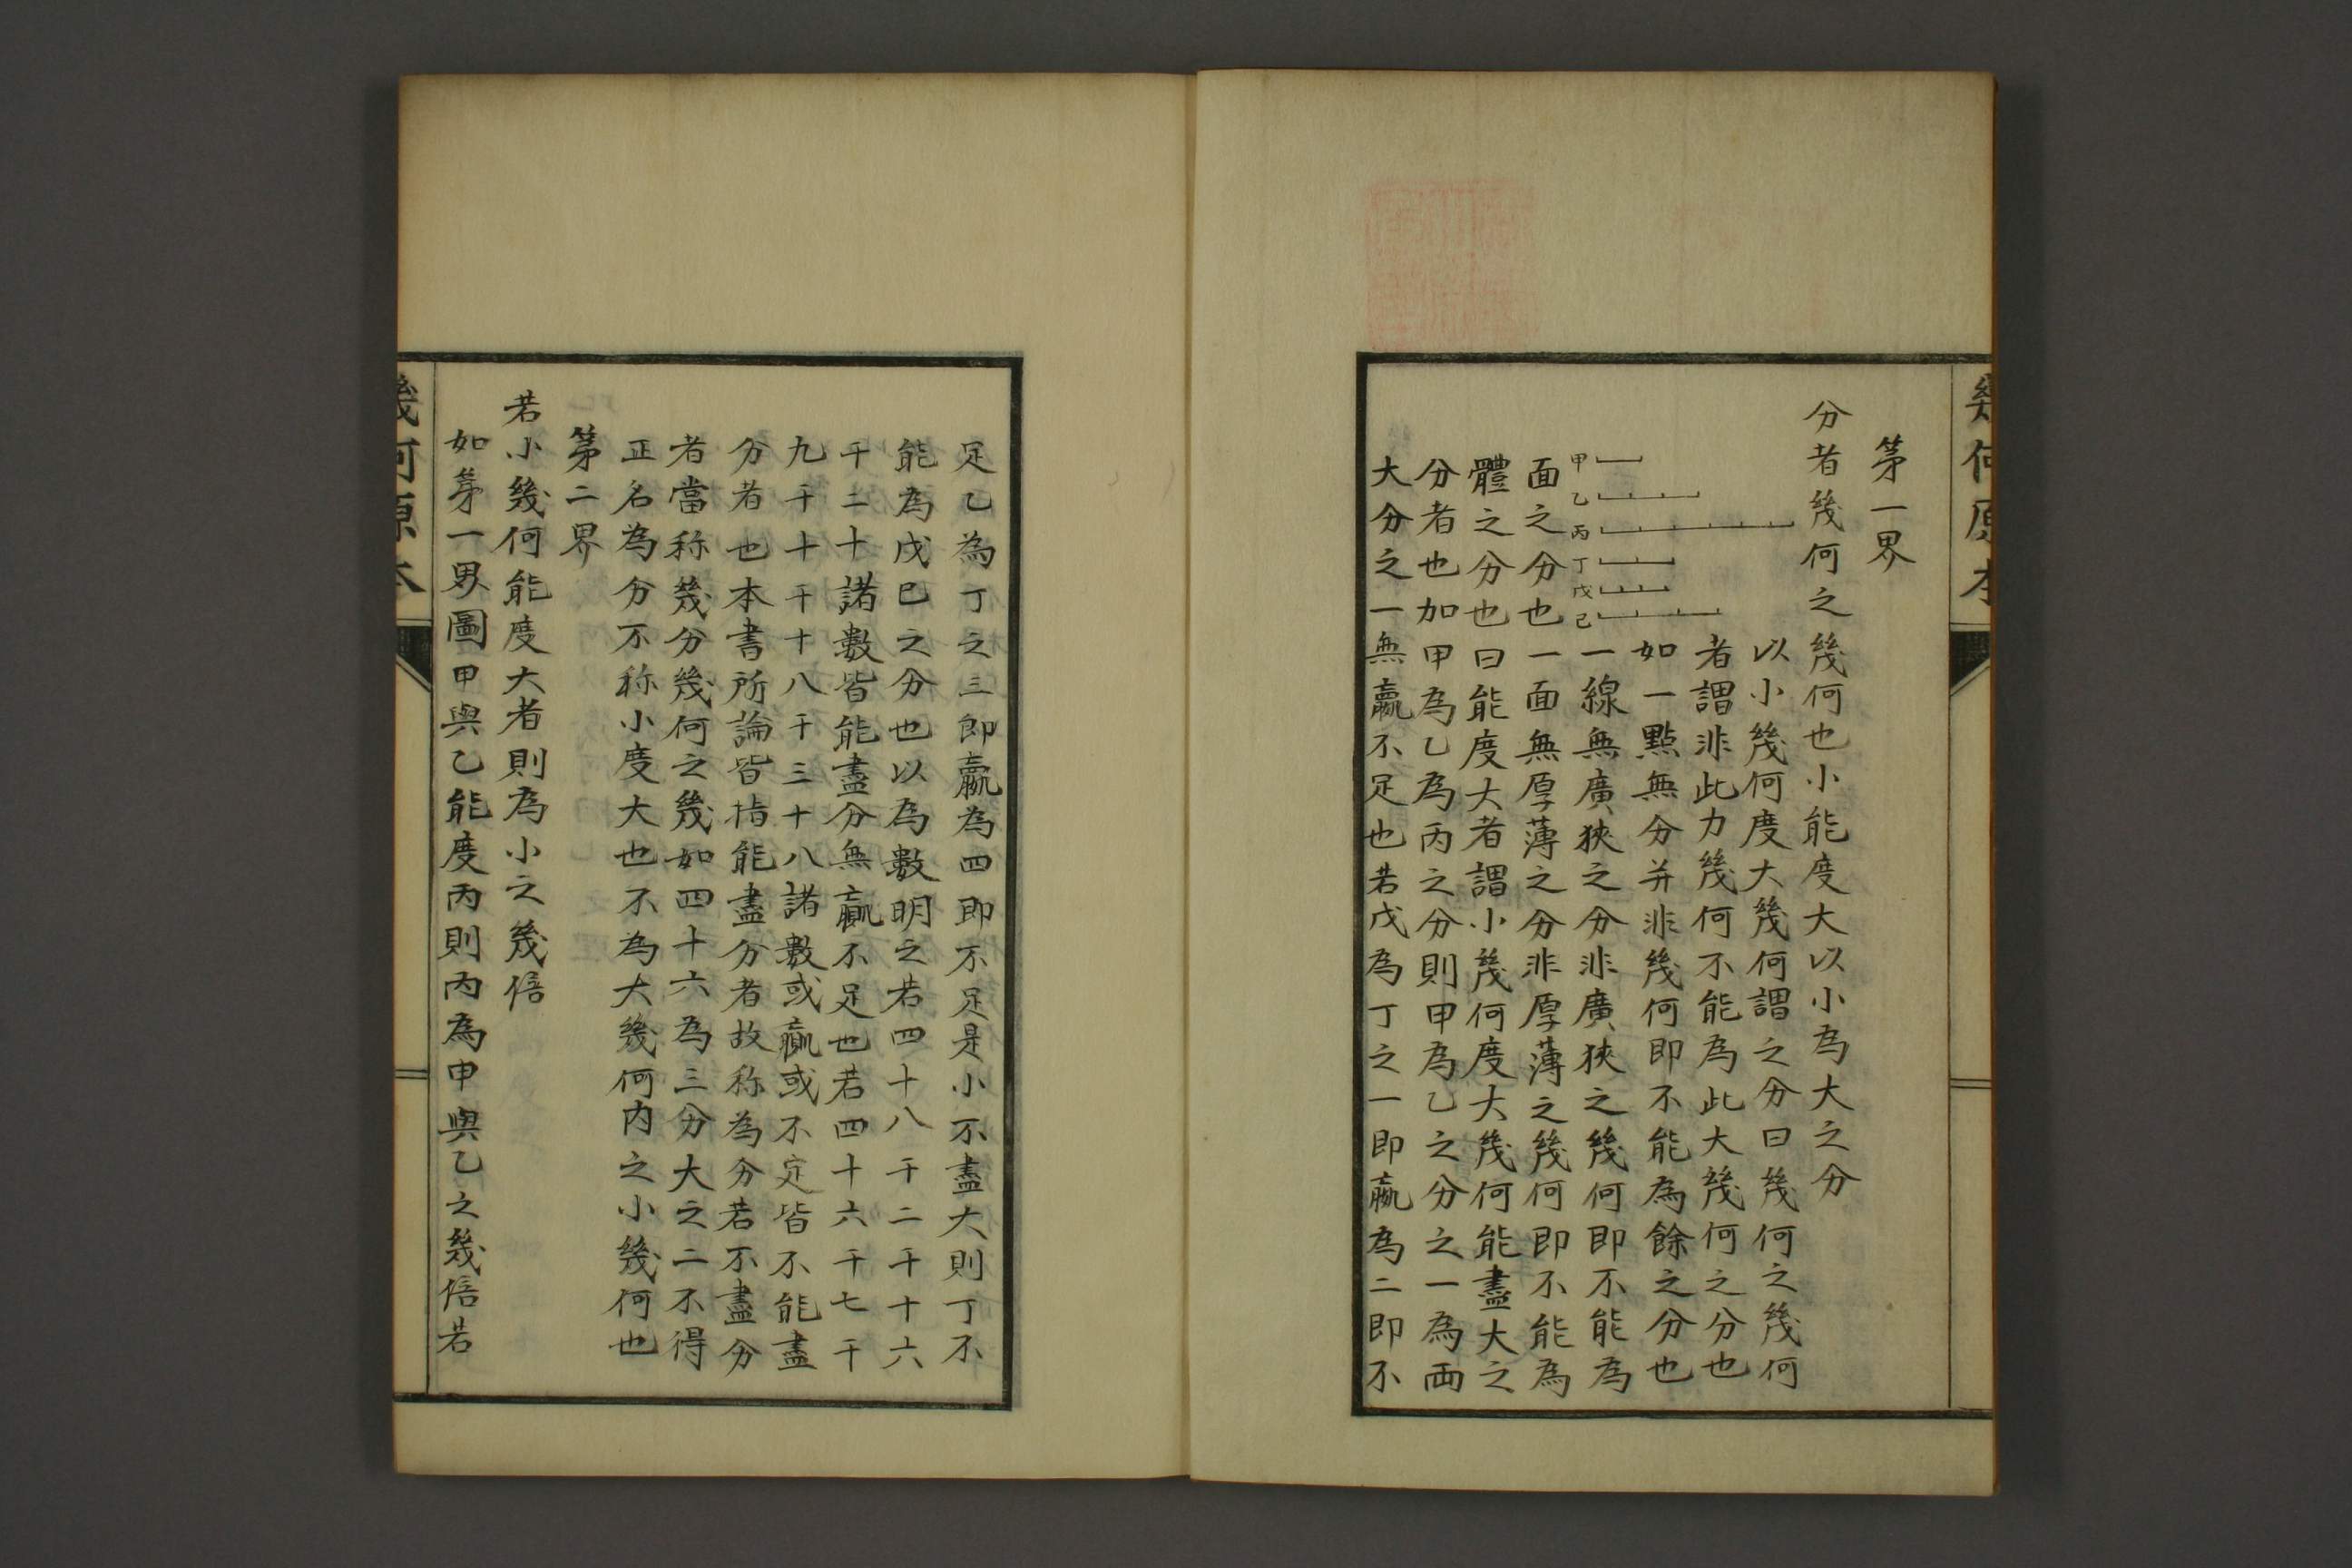 幾何原本
第一界
分者幾何之幾何也小能度大以小為大之分
以小幾何度大幾何謂之分曰幾何之幾何
者謂非此力幾何不能為此大幾何之分也
如一點無分并非幾何即不能為餘之分也
一線無廣狹之分非廣狹之幾何即不能為
甲
乙
丙
丁
戊
己
面之分也一面無厚薄之分非厚薄之幾何即不能為
體之分也曰能度大者謂小幾何度大幾何能盡大之
分者也如甲為乙為丙之分則甲為乙之分之一為兩
大分之一無贏不足也若戊為丁之一即贏為二即不
足乙為丁之三即贏為四即不足是小不盡大則丁不
能為戊巳之分也以為數明之若四十八干二干十六
干二十諸數皆能盡分無贏不足也若四十六干七干
九干十干十八干三十八諸數或贏或不定皆不能盡
分者也本書所論皆指能盡分者故称為分若不盡分
者當称幾分幾何之幾如四十六為三分大之二不得
正名為分不称小度大也不為大幾何内之小幾何也
第二界
若小幾何能度大者則為小之幾倍
如第一界圖甲與乙能度丙則丙為申與乙之幾倍若
幾何原本